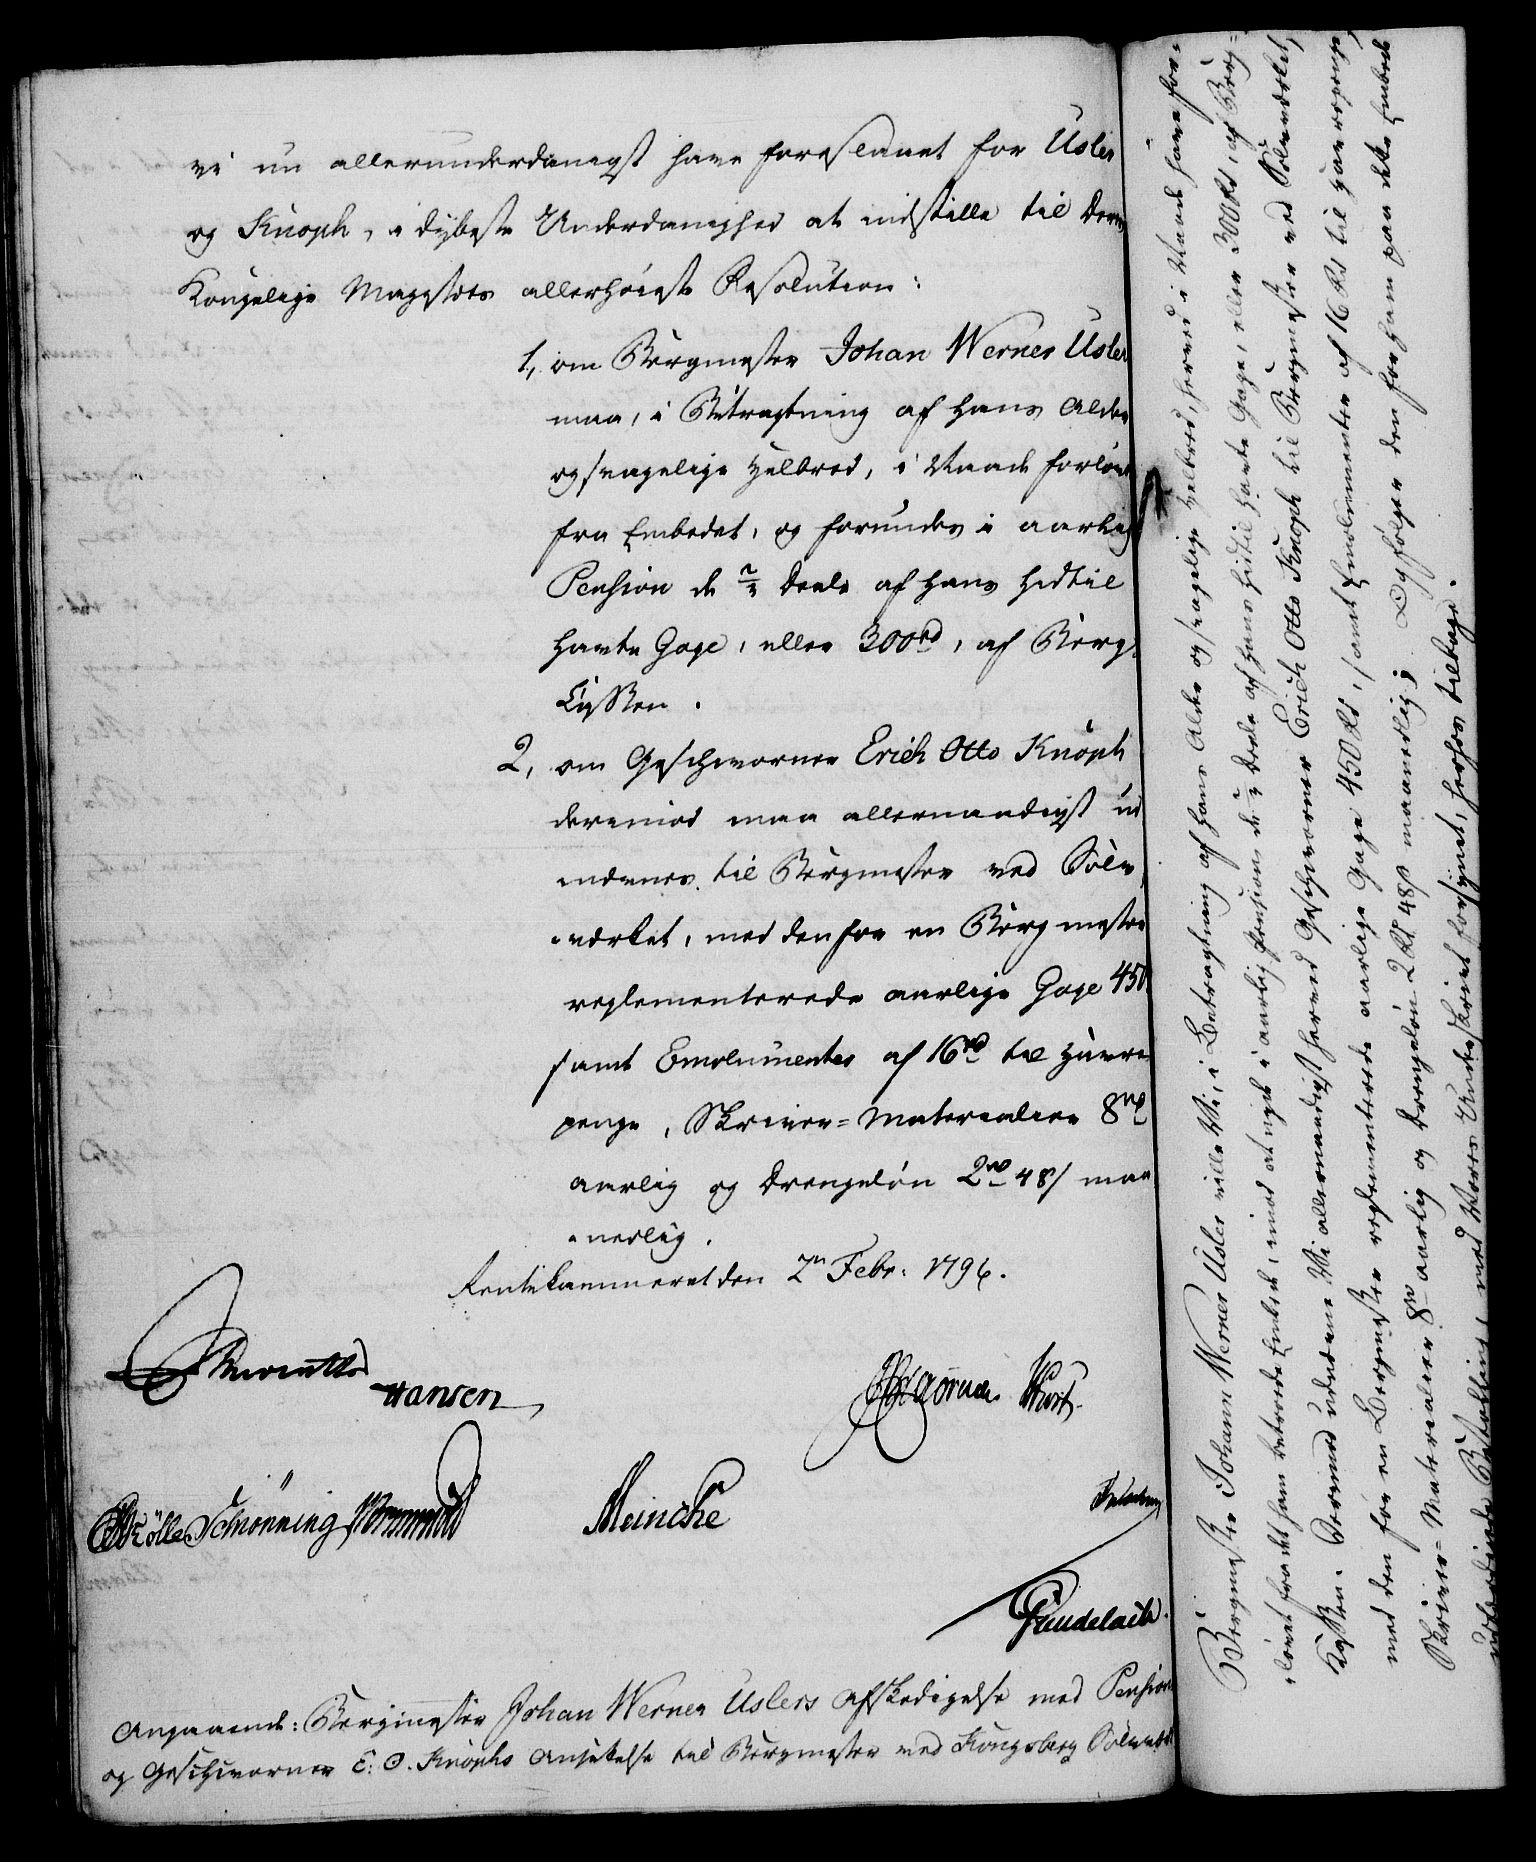 vi nu allerunderdanigst have foreslaaet for Usler
og Knoph, i dybeste Underdanighed at indstille til Deres
Kongelige Majestæts allerhøieste Resolution:
1, om Bergmester Johan Werner Usler
maa, i Betragtning af hans Alder
og svagelige Helbred, i Naade forløves
fra Embedet, og forundes i aarlig
Pension de ⅔ Deele af hans hidtil
havte Gage, eller 300 rd, af Berg-
Cassen.
2, om Geschworner Erich Otto Knoph
derimod maa allernaadigst ud
nævnes til Bergmester ved Sølv
værket, med den for en Bergmester
reglementerede aarlige Gage 450
samt Emolumenter af 16 rd til Huusleie
penge, Skriver-Materialier 8 rd
aarlig og Drengeløn 2 rd 48 s maa
nedlig.
Rentekammeret den 2n Febr: 1796.
Hansen
Schønning Wormskiold
Meincke
Gudelach
Angaaende: Bergmester Johan Werner Uslers Afskedigelse med Pension
og Geschworner E: O. Knophs Ansættelse til Bergmester ved Kongsberg Sølvværk
Bergmester Johann Werner Usler ville Vi, i Betragtning af hans Alder og svagelige Helbred, herved i Naade have for-
løvet fra det ham betroede Embede, imod at nyde i aarlig Pension de ⅔ Deele af hans hidtil havte Gage, eller 300 Rd, af Berg-
Kassen. Derimod udnævne Vi allernaadigst herved Geschworner Erich Otto Knoph til Bergmester ved Sølvværket,
med den for en Bergmester reglementerede aarlige Gage 450 Rd, samt Emolumenter af 16 Rd til
Skriver-Materialier 8 rd aarlig og Drengeløn 2 Rd 48 s maanedlig; Og følger den for ham paa dette Embede
udfærdigede Bestalling, med Vores Underskrivt forsynet, herhos tilbage.